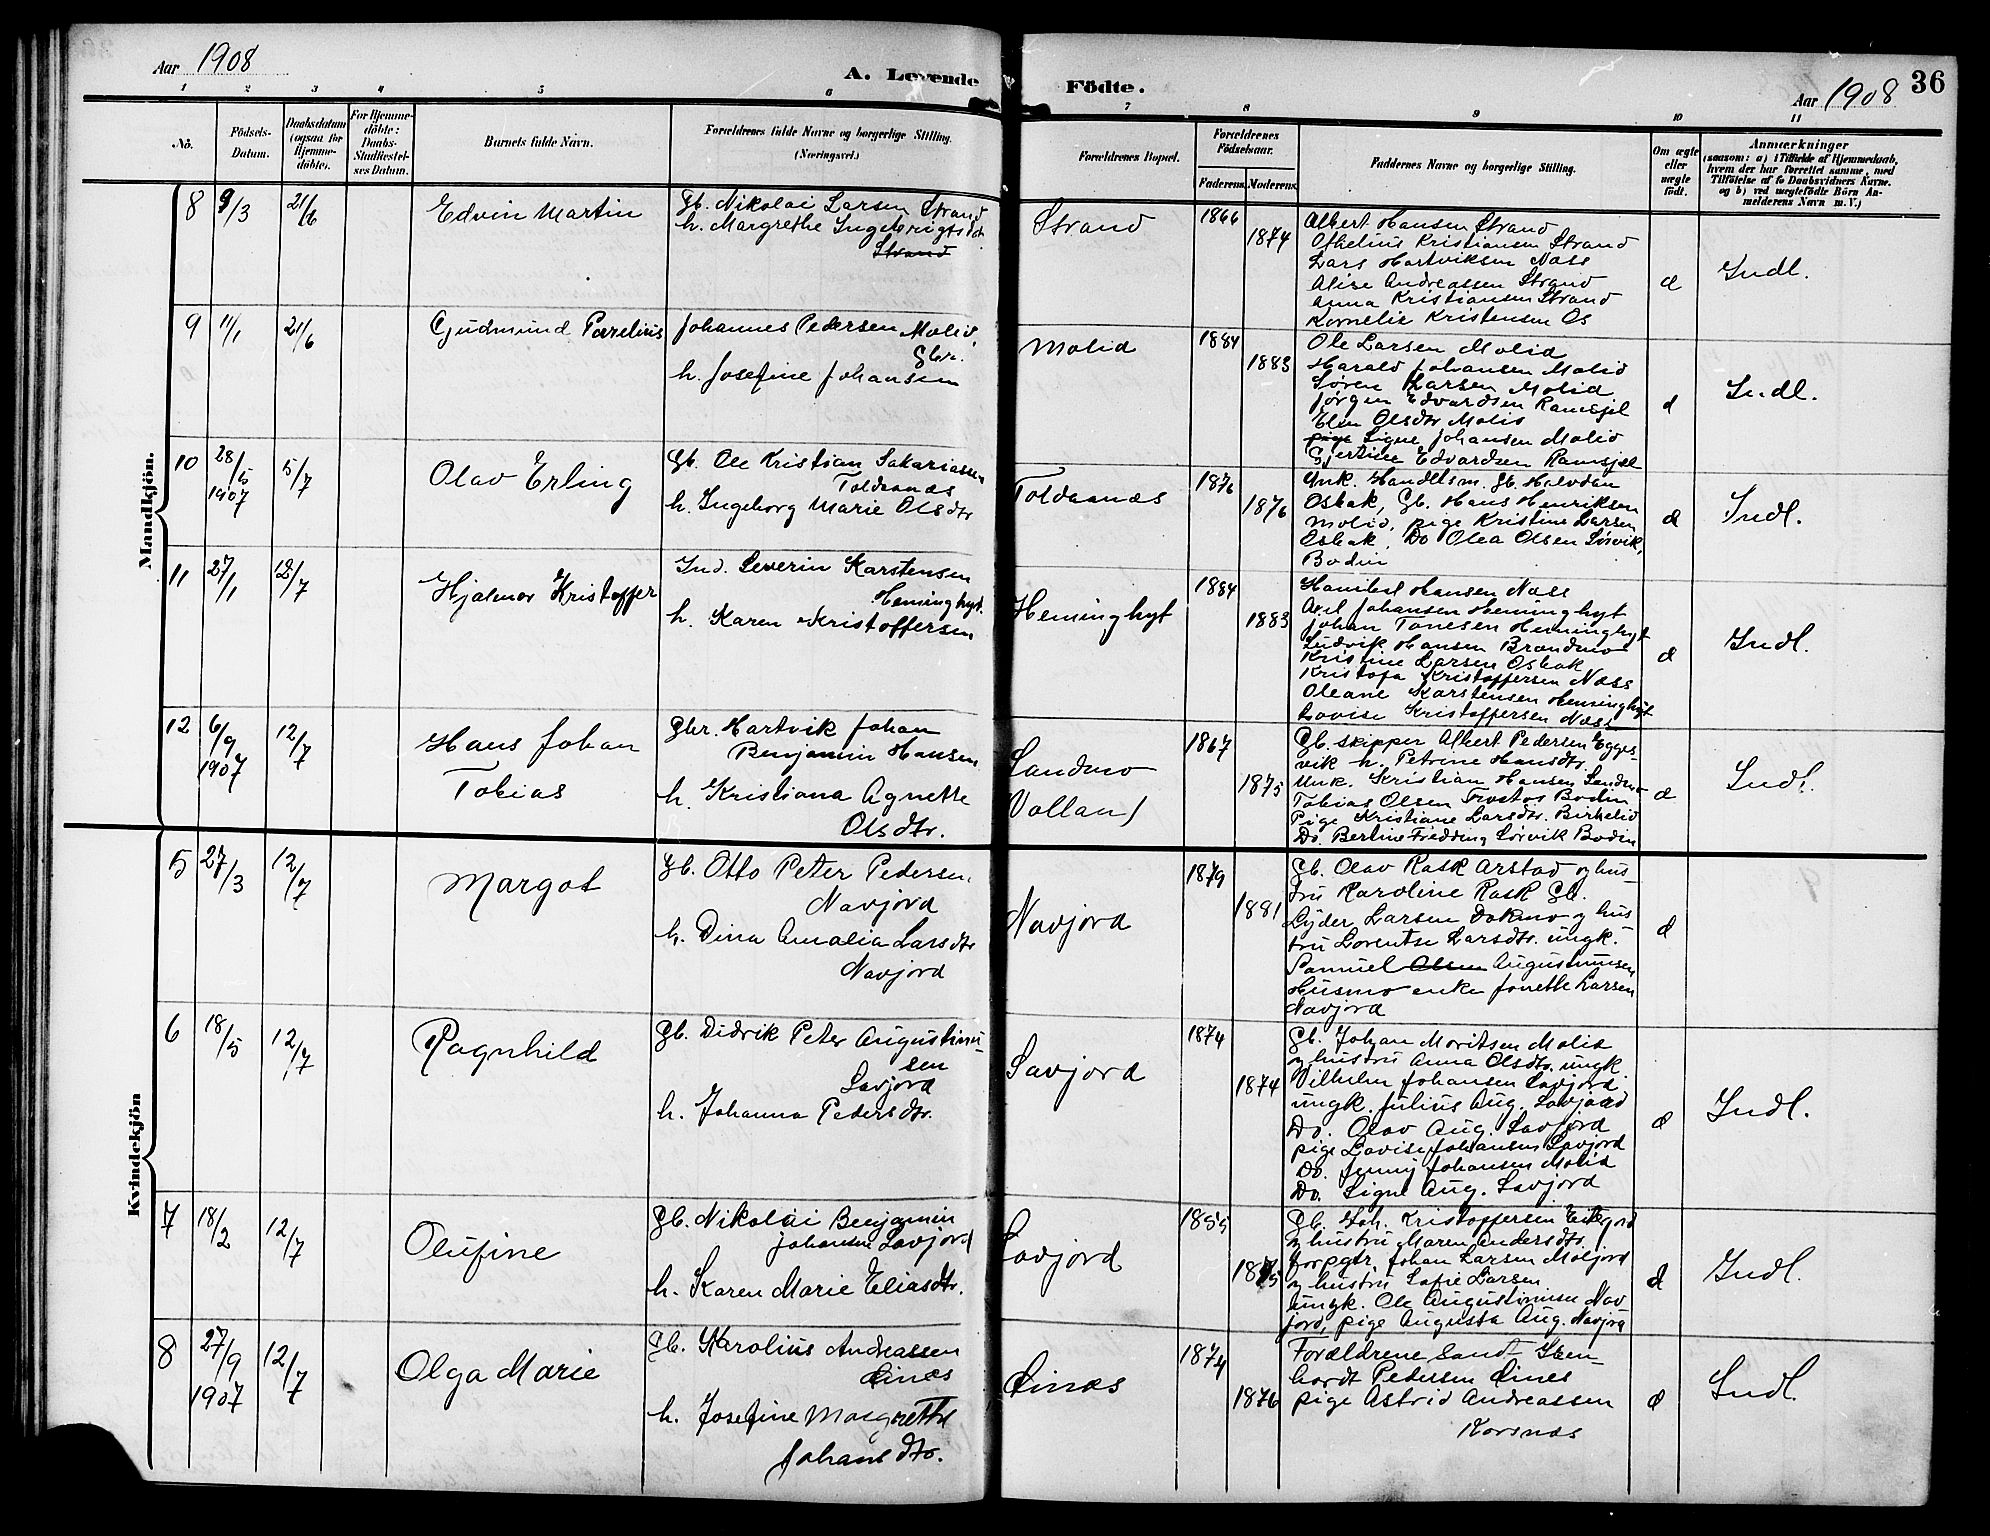 Aar 1908
A. Levende
Födte.
Aar 1908
36
1 2 3 4 5 6 7 8 9 10 11
No.
Födsels-
Datum.
Daabsdatum
(ogsaa for
Hjemme-
döbte).
For Hjemme-
döbte:
Daabs-
Stadfæstel-
ses Datum.
Barnets fulde Navn.
Forældrenes fulde Navne og borgerlige Stilling.
(Næringsvei.)
Forældrenes Bopæl.
Forældrenes
Födselsaar.
Faderens.
Moderens.
Faddernes Navne og borgerlige Stilling.
Om ægte
eller
uægte
födt.
Anmærkninger
(saasom: a) i Tilfælde af Hjemmedaab,
hvem der har forrettet samme, med
Tilföielse af to Daabsvidners Navne,
og b) ved uægtefödte Börn An-
melderens Navn m. V.)
Mandkjön.
8
9/3
21/6
Edvin Martin
Gb. Nikolai Larsen Strand
h. Margrethe Ingebrigtsdt
Strand
Strand
1866
1874
Albert Hansen Strand
Othelius Kristiansen Strand
Lars Hartviksen Næss
Alise Andreassen Strand
Anna Kristiansen Strand
Kornelie Kristensen Os
d
Indl.
9
11/1
21/6
Gudmund Pærelius
Johannes Pedersen Molid,
Gbr.
h. Josefine Johansen
Molid
1884
1883
Ole Larsen Molid
Harald Johansen Molid
Søren Larsen Molid
Jørgen Edvardsen Ramsjel
Elen Olsdtr Molid
pige Signe Johansen Molid
Gjertine Edvardsen Ramsjel
d
Indl.
10
28/5
1907
5/7
Olav Erling
Gb. Ole Kristian Sakariassen
Toldaanæs
h. Ingeborg Marie Olsdtr
Toldaanæs
1876
1876
Ynk. Handelsm. Gb. Halvdan
Osbak, Gb. Hans Henriksen
Molid, pige Kristine Larsen
Osbak, Do Olea Olsen Sørvik,
Bodin
d
Indl.
11
27/1
12/7
Hjalmar Kristoffer
Ind. Severin Karstensen
Heminghyt.
h. Karen Kristoffersen
Heminghyt
1884
1883
Hanibal Hansen Næss
Axel Johansen Heminghyt
Johan Tønesen Heminghyt
Ludvik Hansen Brandmo
Kristine Larsen Osbak
Kristofa Kristoffersen Næss
Oleane Karstensen Heminghyt
Lovise Kristoffersen Næss
d
Indl.
12
6/9
1907
12/7
Hans Johan
Tobias
Gbr. Hartvik Johan
Benjamin Hansen
h. Kristiana Agnette
Olsdtr.
Sandmo
Volland
1867
1875
Gb. skipper Albert Pedersen Egges-
vik h. Petrine Hansdtr.
Unk. Kristian Hansen Sandmo
Tobias Olsen Bodin
Pige Kristiane Larsdtr. Birkelid
Do. Bertine Fredding Sørvik Bodin
d
Indl.
Kvindekjön
5
27/3
12/7
Margot
Gb. Otto Peter Pedersen,
Navjord
h. Dina Amalia Larsdtr
Navjord
Navjord
1879
1881
Gb. Olav Rask Arstad og hus-
tru Karoline Rask Gb.
Lyder Larsen Dokmo og hus
tru Lorentse Larsdtr. ungk.
Samuel Olsen Augustinusen
Husmo enke Jonette Larsen
Navjord
d
6
18/5
12/7
Ragnhild
Gb. Didrik Peter Augustinu-
sen
Savjord
h. Johanna Pedersdtr.
Savjord
1874
1874
Gb. Johan Moritsen Molid
og hustru Anna Olsdtr. ungk
Vilhelm Johansen Savjord
ungk. Julius Aug. Savjord
Do. Olav Aug. Savjord
pige Lovise Johansen Savjord
Do. Jenny Johansen Molid
Do. Signe Aug. Savjord
d
Indl.
7
18/2
12/7
Olufine
Gb. Nikolai Benjamin
Johansen Savjord
h. Karen Marie Eliasdtr.
Savjord
1855
1875
Gb. Joh. Kristoffersen
og hustru Maren Andersdtr.
forpgtr. Johan Larsen Moljord
og hustru Sofie Larsen
ungk. Ole Augustinusen Nav
jord, pige Augusta Aug. Navjord
d
Indl.
8
27/9
1907
12/7
Olga Marie
Gb. Karolius Andreassen
Einæs
h. Josefine Margrethe
Johansdtr.
Einæs
1874
1876
Forældrene samt
hardt Pedersen Eines
pige Astrid Andreassen
Korsnæs
d
Indl.